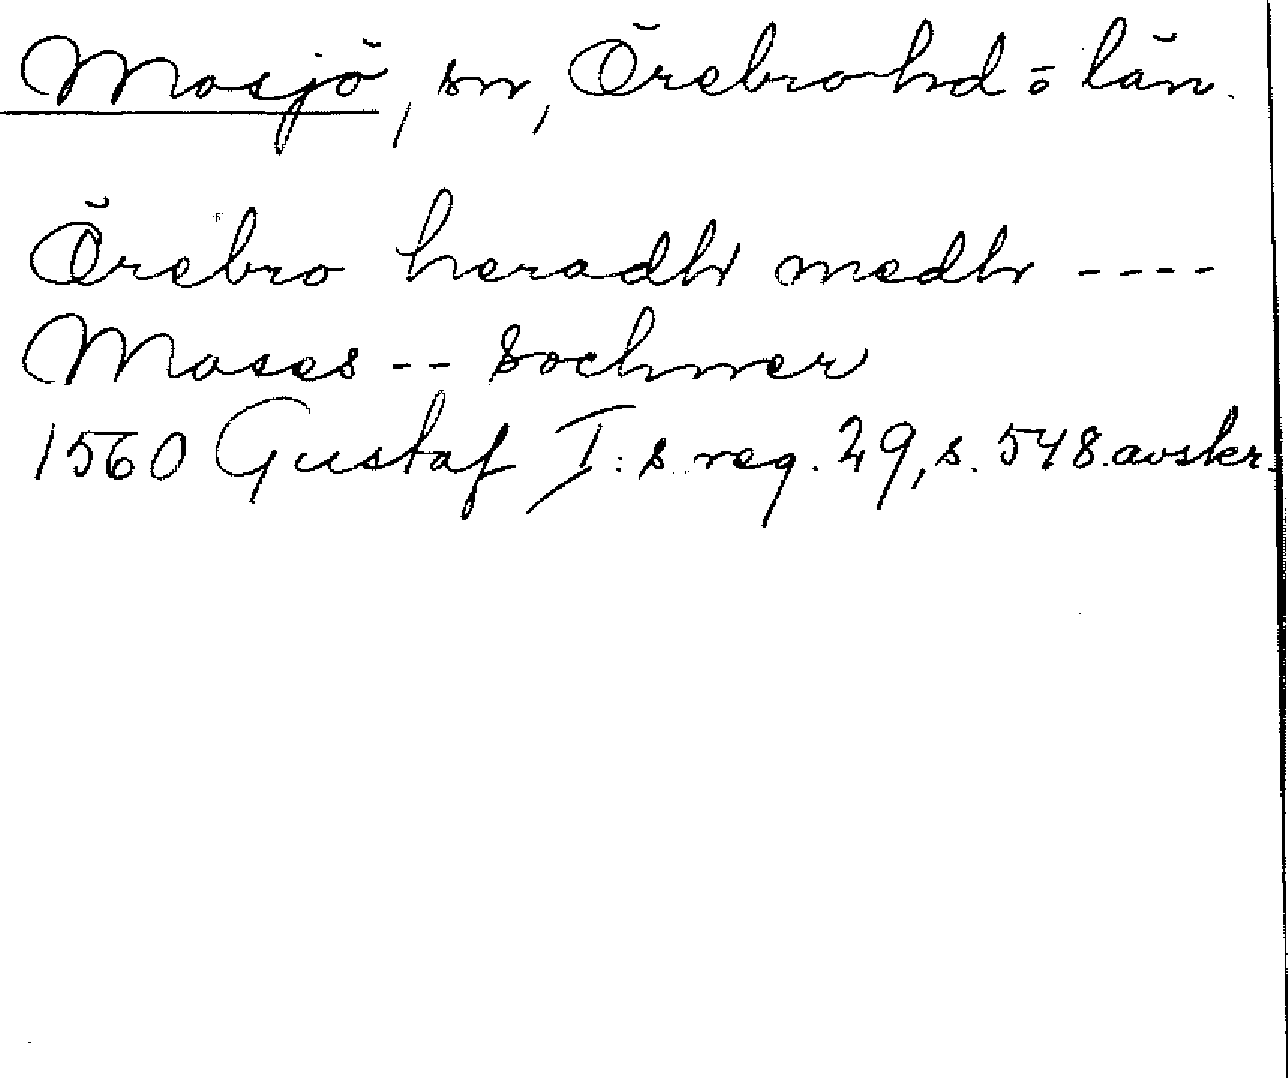 Mosjö, sn, Örebro hd o län.
Örebro heradh medh ----
Moses -- sochner
1560 Gustaf I:s reg. 29, s. 548. avskr.